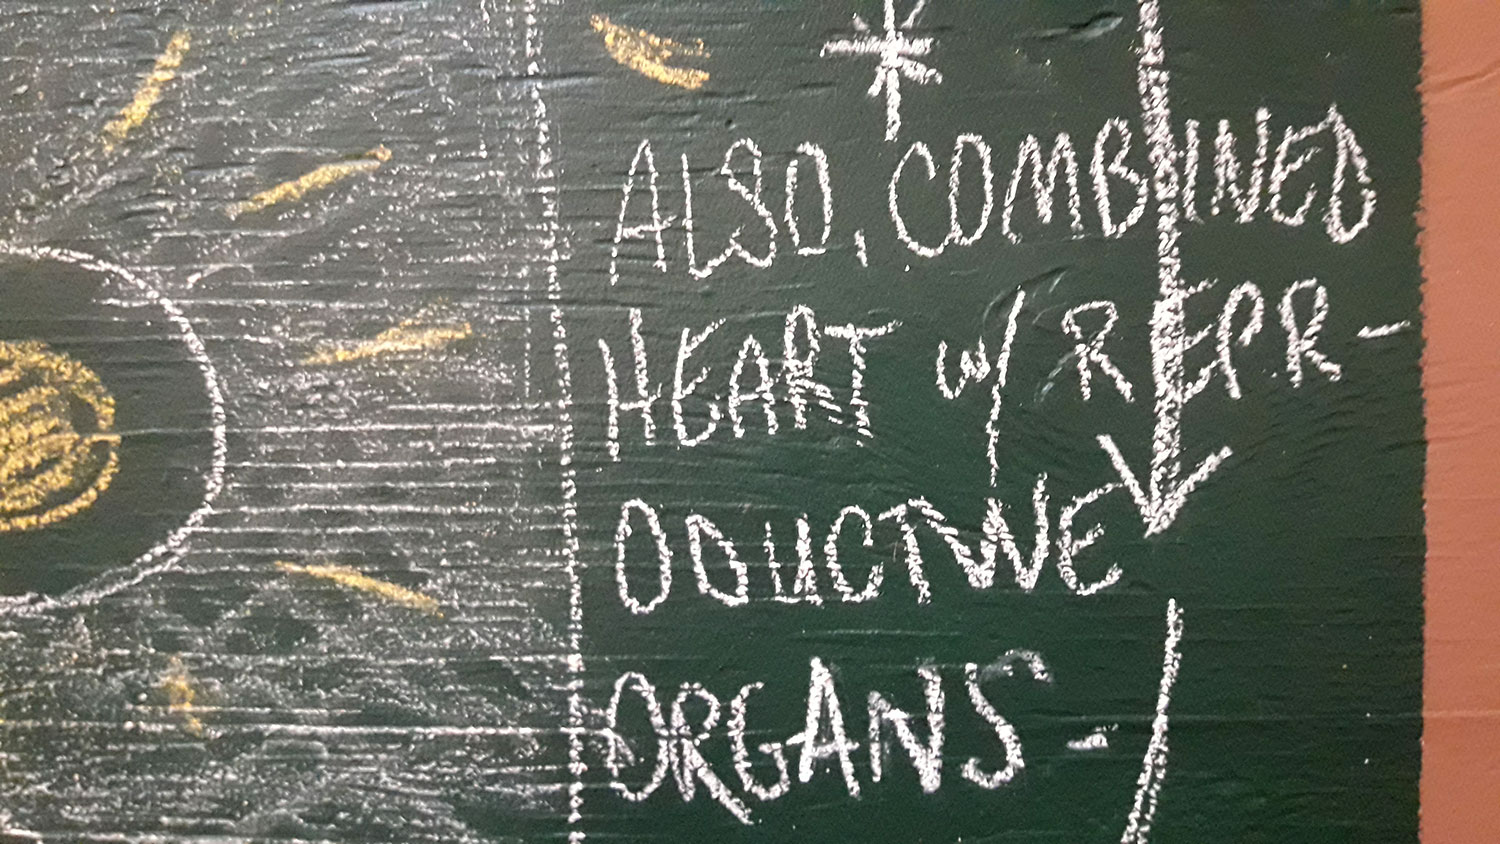 *
ALSO, COMBINED
HEART w/ REPR-
ODUCTIVE
ORGANS -